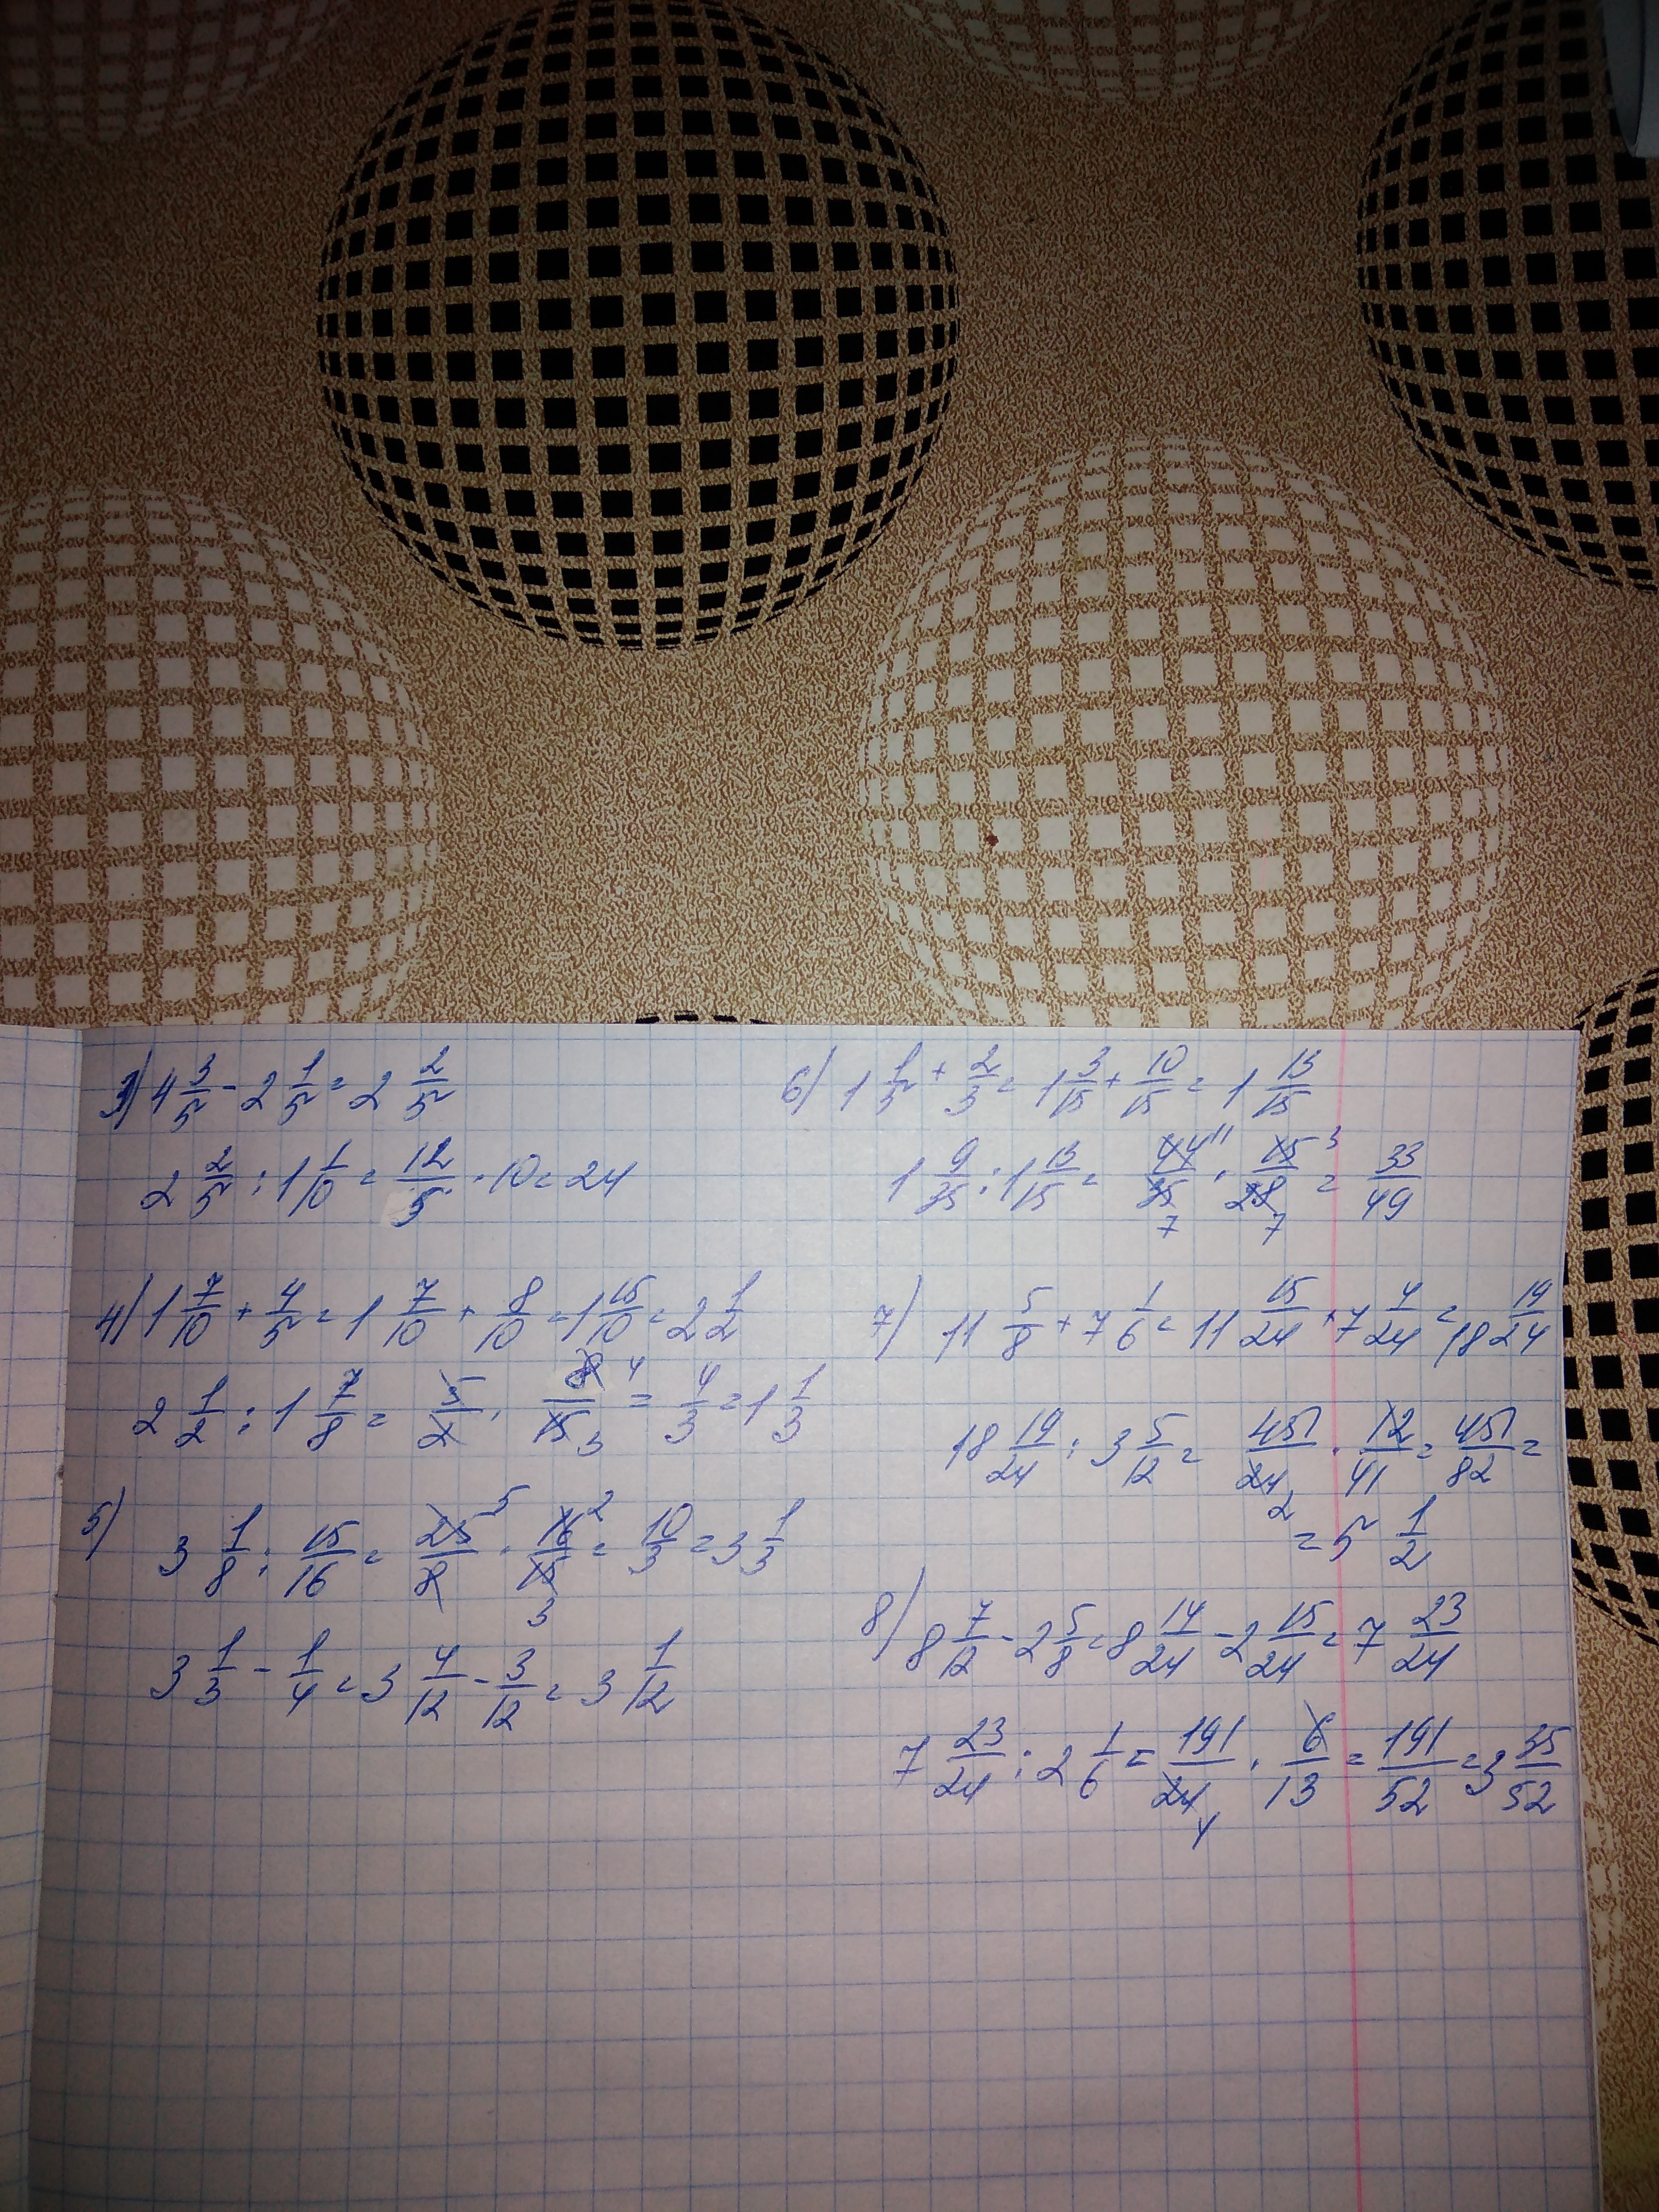 3) 4 3/5 - 2 1/5 = 2 2/5
2 2/5 : 1 1/10 = 12/5 · 10 = 24
4) 1 7/10 + 4/5 = 1 7/10 + 8/10 = 1 15/10 = 2 1/2
2 1/2 : 1 7/8 = 5/2 · 8/15 4 3 = 4/3 = 1 1/3
5)
3 1/8 : 15/16 = 25/8 5 · 16/15 2 3 = 10/3 = 3 1/3
3 1/3 - 1/4 = 3 4/12 - 3/12 = 3 1/12
6) 1 1/5 + 2/3 = 1 3/15 + 10/15 = 1 13/15
1 9/35 : 1 13/15 = 44/35 11 7 · 15/28 3 7 = 33/49
7) 11 5/8 + 7 1/6 = 11 15/24 + 7 4/24 = 18 19/24
18 19/24 : 3 5/12 = 451/24 2 · 12/41 = 451/82 =
= 5 1/2
8) 8 7/12 - 2 5/8 = 8 14/24 - 2 15/24 = 7 23/24
7 23/24 : 2 1/6 = 191/24 4 · 6/13 = 191/52 = 3 35/52